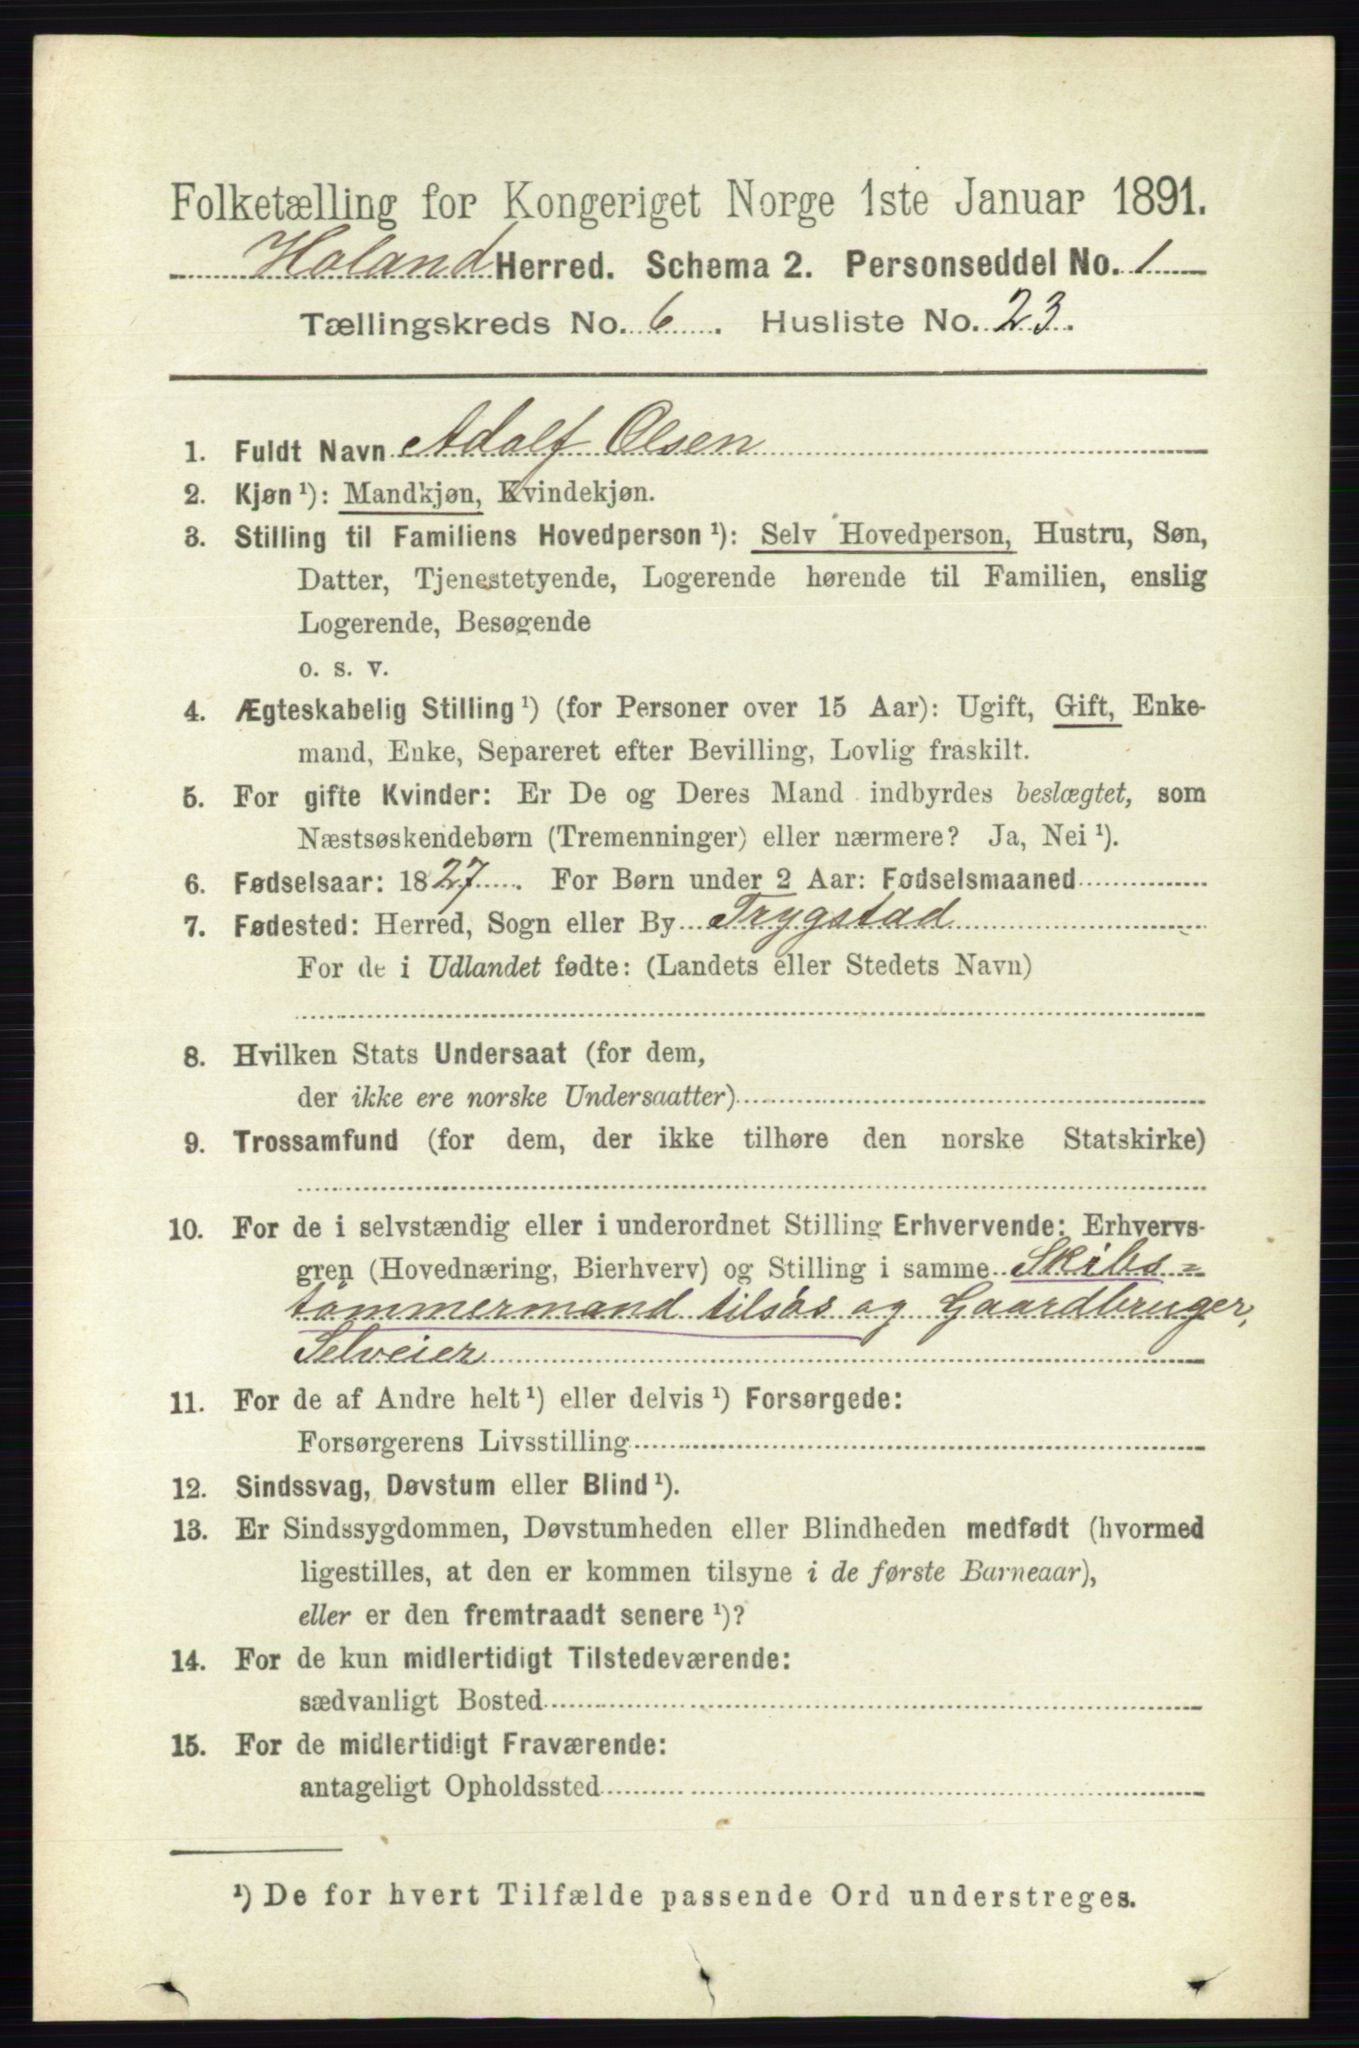 Folketælling for Kongeriget Norge 1ste Januar 1891.
Holand Herred. Schema 2. Personseddel No. 1
Tællingskreds No. 6. Husliste No. 23.
1. Fuldt Navn Adolf Olsen
2. Kjøn ¹): Mandkjøn, Kvindekjøn.
3. Stilling til Familiens Hovedperson ¹): Selv Hovedperson, Hustru, Søn,
Datter, Tjenestetyende, Logerende hørende til Familien, enslig
Logerende, Besøgende
o. s. v.
4. Ægteskabelig Stilling ¹) (for Personer over 15 Aar): Ugift, Gift, Enke-
mand, Enke, Separeret efter Bevilling, Lovlig fraskilt.
5. For gifte Kvinder: Er De og Deres Mand indbyrdes beslægtet, som
Næstsøskendebørn (Tremenninger) eller nærmere? Ja, Nei ¹).
6. Fødselsaar: 1827. For Børn under 2 Aar: Fødselsmaaned
7. Fødested: Herred, Sogn eller By Trygstad
For de i Udlandet fødte: (Landets eller Stedets Navn)
8. Hvilken Stats Undersaat (for dem,
der ikke ere norske Undersaatter)
9. Trossamfund (for dem, der ikke tilhøre den norske Statskirke)
10. For de i selvstændig eller i underordnet Stilling Erhvervende: Erhvervs-
gren (Hovednæring, Bierhverv) og Stilling i samme Skibs=
tömmermand tilsös og Gaardbruger,
Selveier
11. For de af Andre helt ¹) eller delvis ¹) Forsørgede:
Forsørgerens Livsstilling
12. Sindssvag, Døvstum eller Blind ¹).
13. Er Sindssygdommen, Døvstumheden eller Blindheden medfødt (hvormed
ligestilles, at den er kommen tilsyne i de første Barneaar),
eller er den fremtraadt senere ¹)?
14. For de kun midlertidigt Tilstedeværende:
sædvanligt Bosted
15. For de midlertidigt Fraværende:
antageligt Opholdssted
¹) De for hvert Tilfælde passende Ord understreges.